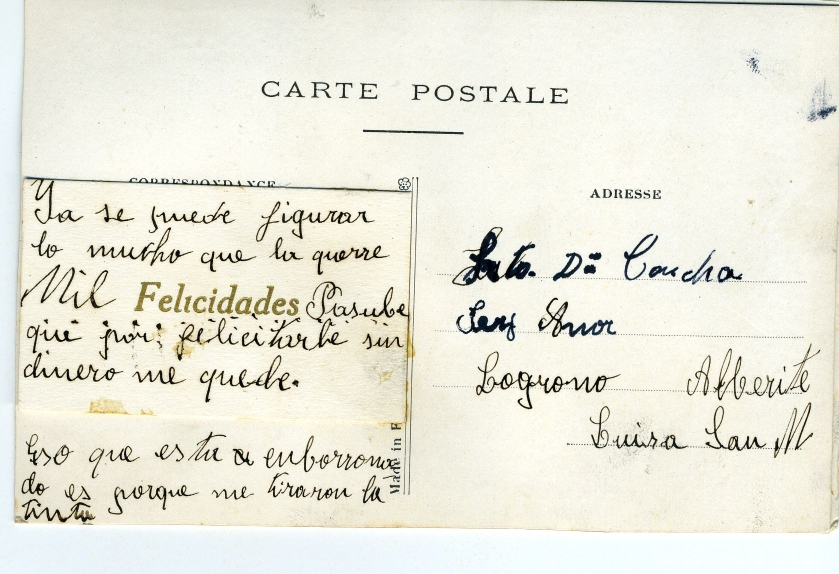 CARTE POSTALE
CORRESPONDANCE
Ya se puede figurar
lo mucho que la querre
Mil Felicidades Pasube
que por felicitarle sin
dinero me quede.
Eso que esta enborrona
do es porque me tiraron la
tinta
Made in F
ADRESSE
Srta. Dª Concha
Logrono Alberite
Luisa San M